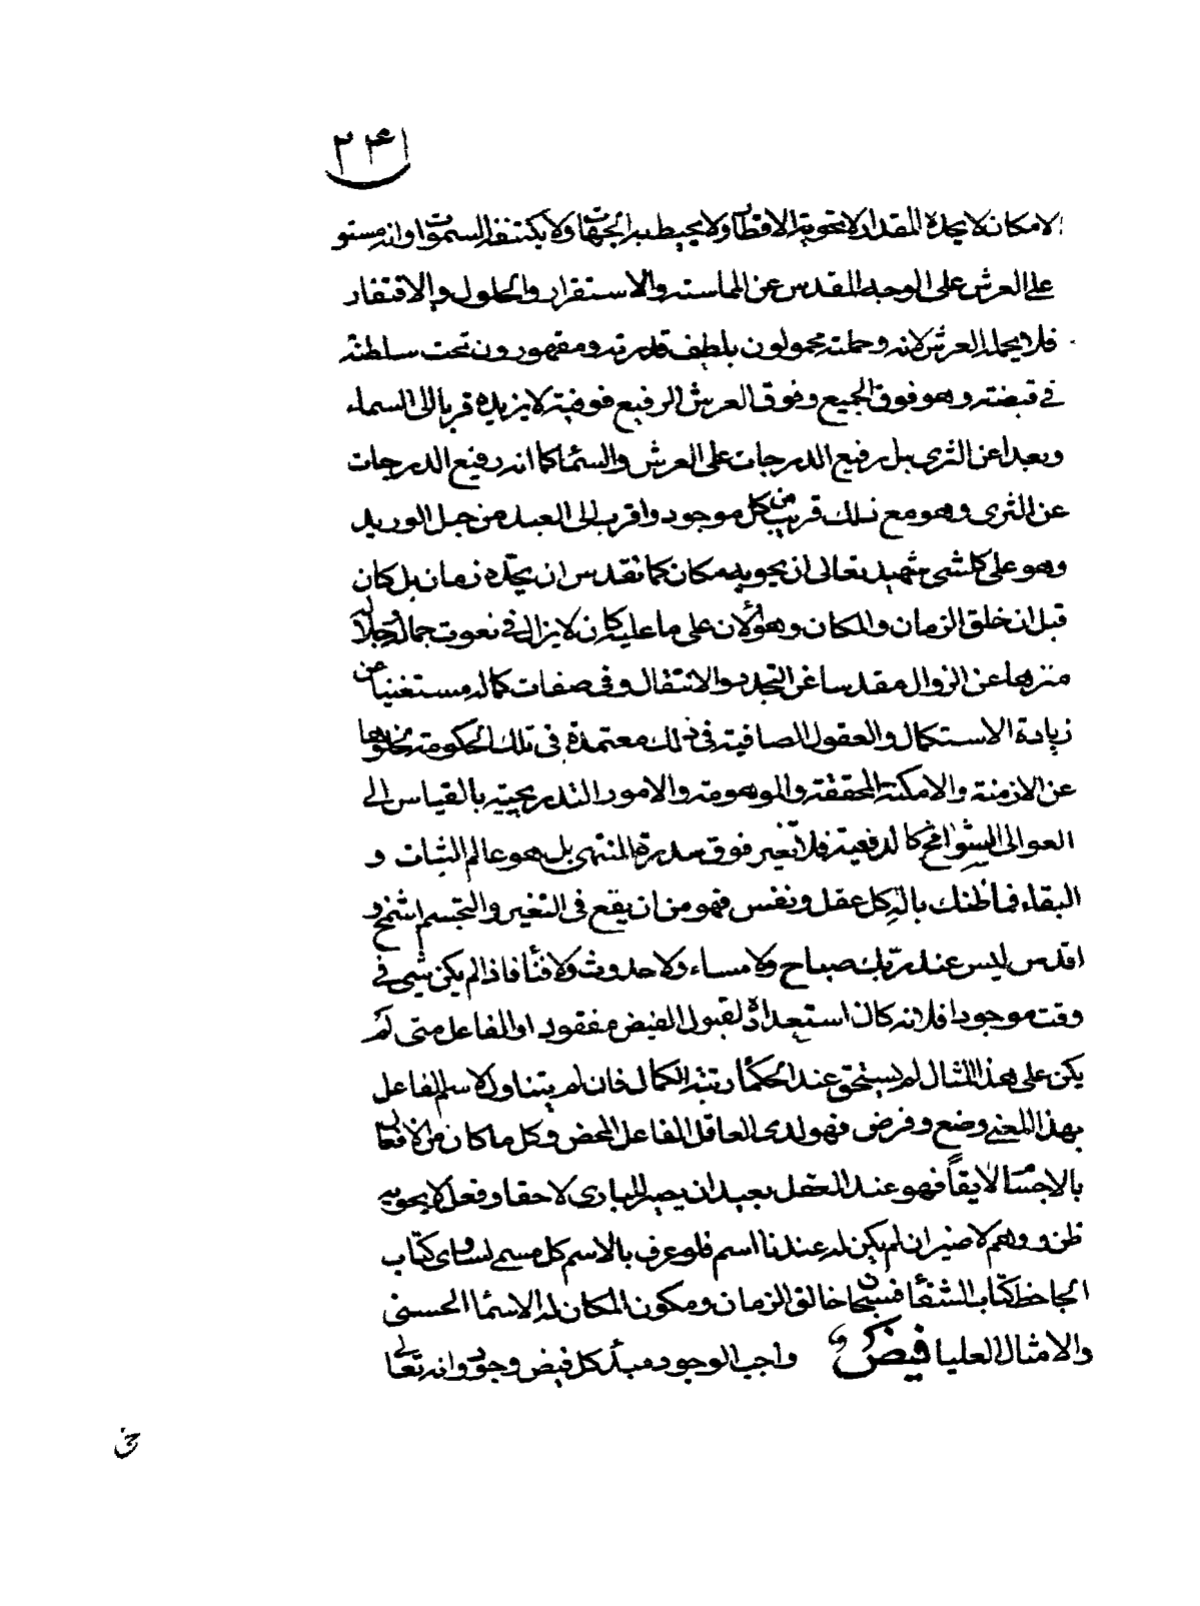 ٢٣١
الامكان لا يحده المقدار لا تحويه الاقطار ولا يحيط به الجهات ولا يكتنفه السموات وانه مستو
على العرش على الوجه المقدس عن المماسة والاستقرار والحلول والافتقار
فلا يحمله العرش لانه وحملته محمولون بلطف قدرته ومقهورون تحت سلطنته
في قبضته وهو فوق الجميع وفوق العرش الرفيع فوقية لا يزيده قربا الى السماء
وبعدا عن الثرى بل رفيع الدرجات على العرش والسماء كما انه رفيع الدرجات
عن الثرى وهو مع ذلك قريب من كل موجود واقرب الى العبد من حبل الوريد
وهو على كلشى شهيد تعالى ان يحويه مكان كما تقدس ان يحده زمان بل كان
قبل ان خلق الزمان والمكان وهو الان على ما عليه كان لا يزال في نعوت جماله وجلاله
منزها عن الزوال مقدسا عن التجدد والانتقال وفى صفات كماله مستغنيا عن
زيادة الاستكمال والعقول الصافية في ذلك معتمدة في تلك الحكومة خلوها
عن الازمنة والامكنة المحققة والموهومة والامور التدريجية بالقياس الى
العوالى الشوامخ كالدفعية فلا تغير فوق سدرة المنتهى بل هو عالم الثبات و
البقاء فما ظنك باله كل عقل ونفس فهو من ان يقع فى التغير والتجسم اشمخ و
اقدس ليس عند ربك صباح ولا مساء ولا حدوث ولا فناء فاذا لم يكن شيى في
وقت موجودا فلانه كان استعداده لقبول الفيض مفقود او الفاعل متى لم
يكن على هذا المثال لم يستحق عند الحكماء رتبة الكمال فان لم يتناول الاسم الفاعل
بهذا المعنى وضع وفرض فهو لدى العاقل الفاعل المحض وكل ما كان من الافعال
بالاجسام لايقاً فهو عند العقل بعيد ان يصير البارى لاحقا وفعل لا يحويه
ظن ووهم لا ضير ان لم يكن له عندنا اسم فلو عرف بالاسم كل مسمى لساوى كتاب
الجاحظ كتاب الشفاء فسبحان خالق الزمان ومكون المكان له الاسماء الحسنى
والامثال العليا فيض واجب الوجود مبدأ كل فيض وجود وانه تعالى